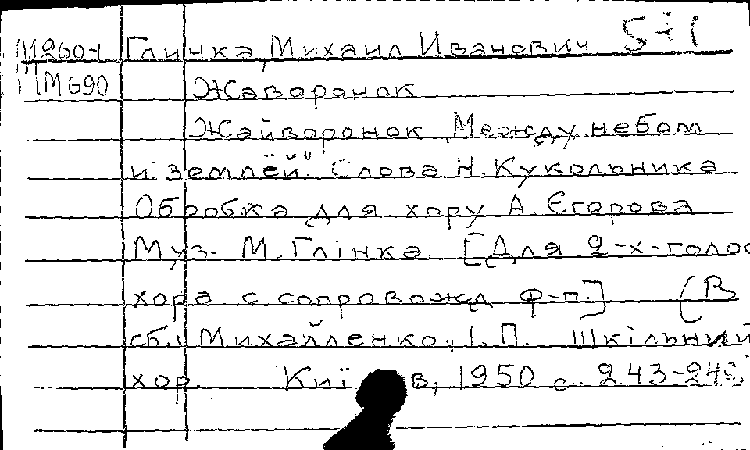 М260-1 Глинка, Михаил Иванович 5-1
ММ690 Жаворонок
Жайворонок „Между небом
и землёй" Слова Н. Кукольника
Обробка для хору А. Єгорова
Муз. М. Глінка [Для 2-х-голос
хора с сопровожд ф-п.] (В
сб.: Михайленко, І. П. Шкільний
хор. Київ, 1950 с. 243-24